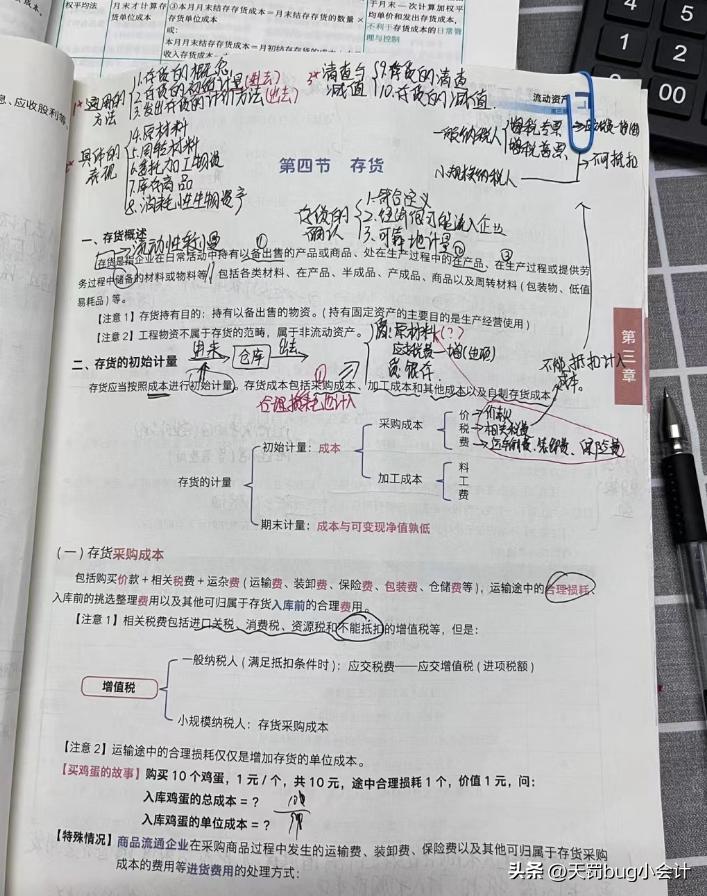 权平均法
月末才计算存
货单位成本
③本月月末结存存货成本=月末结存存货的数量×
存货单位成本
或：
于月末一次计算加权平
均单价和发出存货成本，
不利于存货成本的日常管
理与控制
4
5
1
2
00
息、应收股利等
流动资产
1.存货的概念
2.存货的初始计量(进去)
3.发出存货的计价方法(出去)
适用的
方法
清查与
减值
9.存货的清查
10.存货的减值
具体的
表现
4.原材料
5.周转材料
6.委托加工物资
7.库存商品
8.消耗性生物资产
一般纳税人
增税专票
增税普票
小规模纳税人
不可抵扣
第四节 存货
存货的
确认
1.符合定义
2.经济很可能流入企业
3.可靠地计量
一、存货概述
流动性较慢
存货是指企业在日常活动中持有以备出售的产品或商品、处在生产过程中的在产品、在生产过程或提供劳
务过程中储备的材料或物料等，包括各类材料、在产品、半成品、产成品、商品以及周转材料（包装物、低值
易耗品）等。
【注意1】存货持有目的：持有以备出售的物资。（持有固定资产的主要目的是生产经营使用）
【注意2】工程物资不属于存货的范畴，属于非流动资产。
借：原材料(?)
应交税费—增(进项)
贷：银存
二、存货的初始计量
进来
仓库
出去
存货应当按照成本进行初始计量。存货成本包括采购成本、加工成本和其他成本以及自制存货成本
合理损耗也计入
不能抵扣计入
成本。
第三章
存货的计量
初始计量：成本
采购成本
价
税
费
价款
相关税费
运输费、装卸费、保险费
加工成本
料
工
费
期末计量：成本与可变现净值孰低
（一）存货采购成本
包括购买价款+相关税费+运杂费（运输费、装卸费、保险费、包装费、仓储费等），运输途中的合理损耗、
入库前的挑选整理费用以及其他可归属于存货入库前的合理费用。
【注意1】相关税费包括进口关税、消费税、资源税和不能抵扣的增值税等，但是：
增值税
一般纳税人（满足抵扣条件时）：应交税费——应交增值税（进项税额）
小规模纳税人：存货采购成本
【注意2】运输途中的合理损耗仅仅是增加存货的单位成本。
【买鸡蛋的故事】购买10个鸡蛋，1元/个，共10元，途中合理损耗1个，价值1元，问：
入库鸡蛋的总成本=？
入库鸡蛋的单位成本=？
【特殊情况】商品流通企业在采购商品过程中发生的运输费、装卸费、保险费以及其他可归属于存货采购
成本的费用等进货费用的处理方式：
头条 @天罚bug小会计